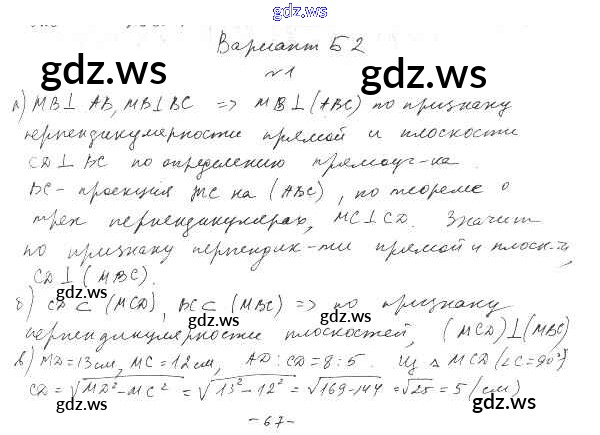 gdz.ws
Вариант Б 2
gdz.ws gdz.ws
№1
а) MB⊥ AB, MB⊥BC => MB⊥(ABC) по признаку
перпендикулярности прямой и плоскости
CD⊥BC по определению прямоуг-ка.
BC - проекция MC на (ABC), по теореме о
трех перпендикулярах, MC⊥CD. Значит
по признаку перпендик-ти прямой и плоск-ти,
CD⊥(MBC).
gdz.ws gdz.ws
б) CD⊂(MCD), BC⊂(MBC) => по признаку
перпендикулярности плоскостей, (MCD)⊥(MBC)
gdz.ws gdz.ws
в) MD=13см, MC=12см, AD:CD=8:5. Из △MCD (∠C=90°)
CD=√MD²-MC² = √13²-12² = √169-144 = √25 = 5 (см)
gdz.ws gdz.ws
-67-